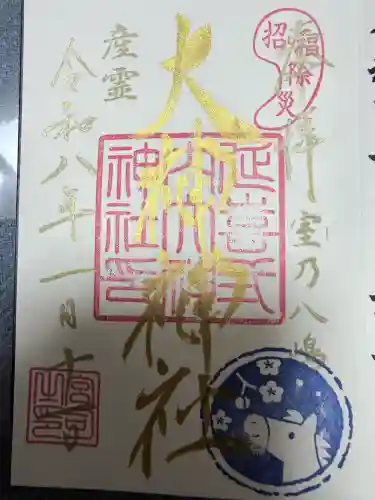 招福除災
奉拝 室乃八嶋
大神神社
延喜式
内大神
神社印
産霊
令和八年一月十